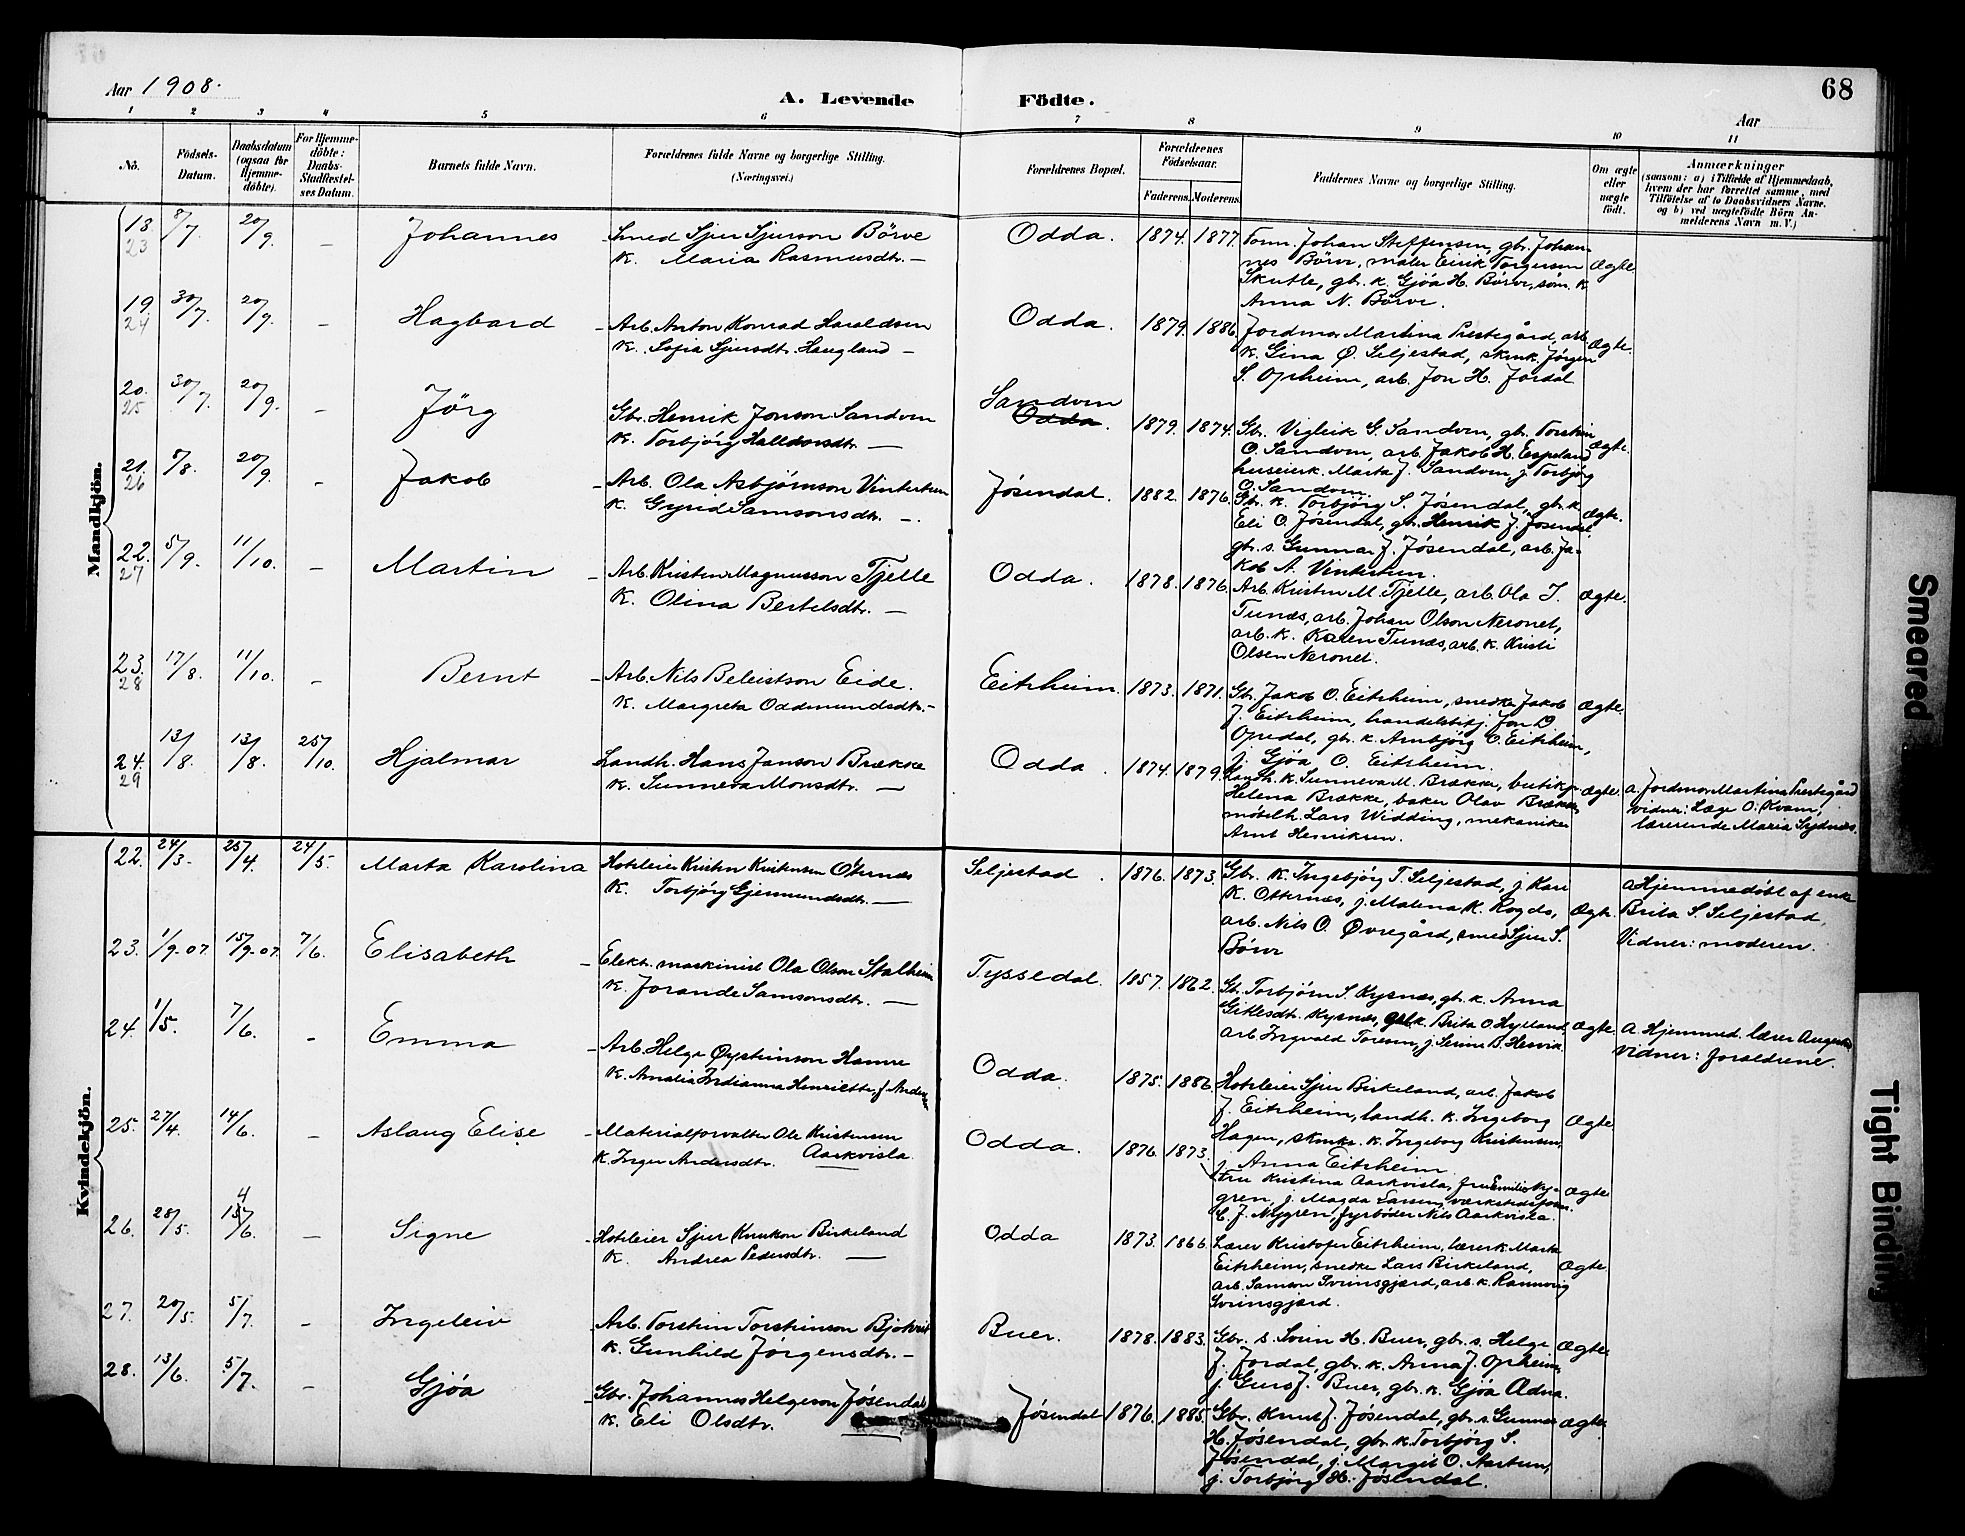 68
Aar 1908.
A. Levende Födte.
Aar
1 2 3 4 5 6 7 8 9 10 11
No.
Födsels-Datum.
Daabsdatum (ogsaa for Hjemme-döbte).
For Hjemme-döbte: Daabs-Stadfæstel-ses Datum.
Barnets fulde Navn.
Forældrenes fulde Navne og borgerlige Stilling. (Næringsvei.)
Forældrenes Bopæl.
Forældrenes Födselsaar.
Faderens. Moderens.
Faddernes Navne og borgerlige Stilling.
Om ægte eller uægte födt.
Anmærkninger
(saasom: a) i Tilfælde af Hjemmedaab,
hvem der har forrettet samme, med
Tilföielse af to Daabsvidners Navne.
og b) ved uægtefödte Börn An-
melderens Navn m. V.)
Mandkjön.
18. 23 8/7 20/9 – Johannes
Smed Sjur Sjurson Börve
K. Maria Rasmusdtr. –
Odda. 1874. 1877.
Form. Johan Steffensen, gbr. Johan-
nes Börve, maler Eirik Torgersen
Skutle, gbr. k. Gjöa H. Börve, söm. k.
Anna N. Börve.
Ægte
19. 24 30/7. 20/9. – Hagbard
Arb. Anton Konrad Haraldsen
K. Sofia Sjursdtr. Haugland –
Odda. 1879. 1886.
Jordmor Martina Prestegård, arb.
k. Gina Ø. Seljestad, Jørgen
S. Opheim, arb. Jon H. Jordal
Ægte.
20. 25 30/7. 20/9. – Jörg
Gbr. Henrik Jonson Sandven
K. Torbjörg Halldorsdtr. –
Sandven
Odda. 1879. 1874.
Gbr. Vigleik G. Sandven, gbr. Torstein
O. Sandven, arb. Jakob H. Espeland
huseierk. Marta J. Sandven, j. Torbjörg
O. Sandven.
Ægte.
21. 26 5/8. 20/9. – Jakob
Arb. Ola Asbjörnson Vintertun
K. Gyrid Samsonsdtr. –.
Jösendal. 1882. 1876.
Gbr. k. Torbjörg S. Jösendal, gbr. k.
Eli O. Jösendal, gbr. Henrik J. Jösendal
gbr. s. Gunnar J. Jösendal, arb. Ja-
kob A. Vintertun.
Ægte.
22. 27 5/9. 11/10. – Martin
Arb. Kristen Magnusson Tjelle
K. Olina Bertelsdtr. –
Odda. 1878. 1876.
Arb. Kristen M. Tjelle, arb. Ola I.
Tunæs, arb. Johan Olson Neronet,
arb. k. Karen Tunæs, arb. k. Kristi
Olsen Neronet.
Ægte.
23. 28 17/8. 11/10. – Bernt
Arb. Nils Beleistson Eide.
K. Margreta Oddmundsdtr. –
Eitrheim. 1873. 1871.
Gbr. Jakob O. Eitrheim, snedker Jakob
J. Eitrheim, Jon D.
Opedal, gbr. k. Arnbjörg O. Eitrheim,
j. Gjöa O. Eitrheim.
Ægte.
24. 29 13/8. 13/8. 25/10. Hjalmar
Landh. Hans Janson Brække
K. Sunneva Monsdtr. –
Odda. 1874. 1879.
Landh. k. Sunneva M. Brække,
Helena Brække, baker Olav Brække,
Lars Widding, mekaniker
Arnt Henriksen.
Ægte.
a. Jordmor Martina Prestegård
vidner: Læge O. Kvam,
lærerinde Maria Sydnæs.
Kvindekjön.
22. 24/3. 25/4. 24/5. Marta Karolina
Hoteleier Kristen Kristensen Oternæs
K. Torbjörg Gjermundsdtr. –
Seljestad. 1876. 1873.
Gbr. k. Ingebjörg T. Seljestad, j. Kari
K. Otternæs, j. Malena K. Rogde,
arb. Nils O. Øvregård, smed Sjur S.
Börve
Ægte.
a. Hjemmedöbt af enke
Brita S. Seljestad,
Vidner: moderen.
23. 1/9. 07 15/9. 07. 7/6. Elisabeth
Elektr. maskinist Ola Olson Stalheim
K. Jorande Samsonsdtr. –
Tyssedal. 1857. 1862.
Gbr. Torbjörn S. Kysnæs, gbr. k. Anna
Gitlesdtr. Kysnæs, gbr. k. Brita O Hylland,
arb. Ingvald Toresen, j. Serine B. Hesvik.
Ægte.
a. Hjemmed. lærer
Vidner: forældrene.
24. 1/5. 7/6. – Emma
Arb. Helge Øysteinson Hamre
K. Amalia Indianna Henriette
Odda. 1875. 1886.
Hoteleier Sjur Birkeland, arb. Jakob
J. Eitrheim, landh. k. Ingeborg
Hagen, k. Ingeborg Kristensen,
j. Anna Eitrheim.
Ægte.
25. 27/4. 14/6. – Aslaug Elise
Materialforvalter Ole Kristensen
Aarkvisla.
K. Inger Andersdtr.
Odda. 1876. 1873.
Fru Kristina Aarkvisla, fru Emilie Ny-
gren, j. Magda Larsen,
C. J. Nygren, fyrböder Nils Aarkvisla.
Ægte
26. 28/5. 14/6. – Signe
Hoteleier Sjur Knutson Birkeland
K. Andrea Pedersdtr. –
Odda 1873. 1866.
Lærer Kristofer Eitrheim, lærerk. Marta
Eitrheim, snedker Lars Birkeland,
arb. Samson Sveinsgjærd, arb. k. Rannveig
Sveinsgjærd.
Ægte.
27. 20/5. 5/7. – Ingeleiv
Arb. Torstein Torsteinson
K. Gunhild Jörgensdtr. –
Buer. 1878. 1883.
Gbr. s. Svein H. Buer, gbr. s. Helge
J. Jordal, gbr. k. Anna J. Opheim,
j. Guro J. Buer, gbr. k. Gjöa
Ægte.
28. 13/6. 5/7. – Gjöa
Gbr. Johannes Helgeson Jösendal
K. Eli Olsdtr.
Jösendal 1876. 1885.
Gbr. Knut J. Jösendal, gbr. s. Gunnar
H. Jösendal, gbr. k. Torbjörg S.
Jösendal, j. Margit O. Aartun,
j. Torbjörg H. Jösendal.
Ægte.
Smeared
Tight Binding